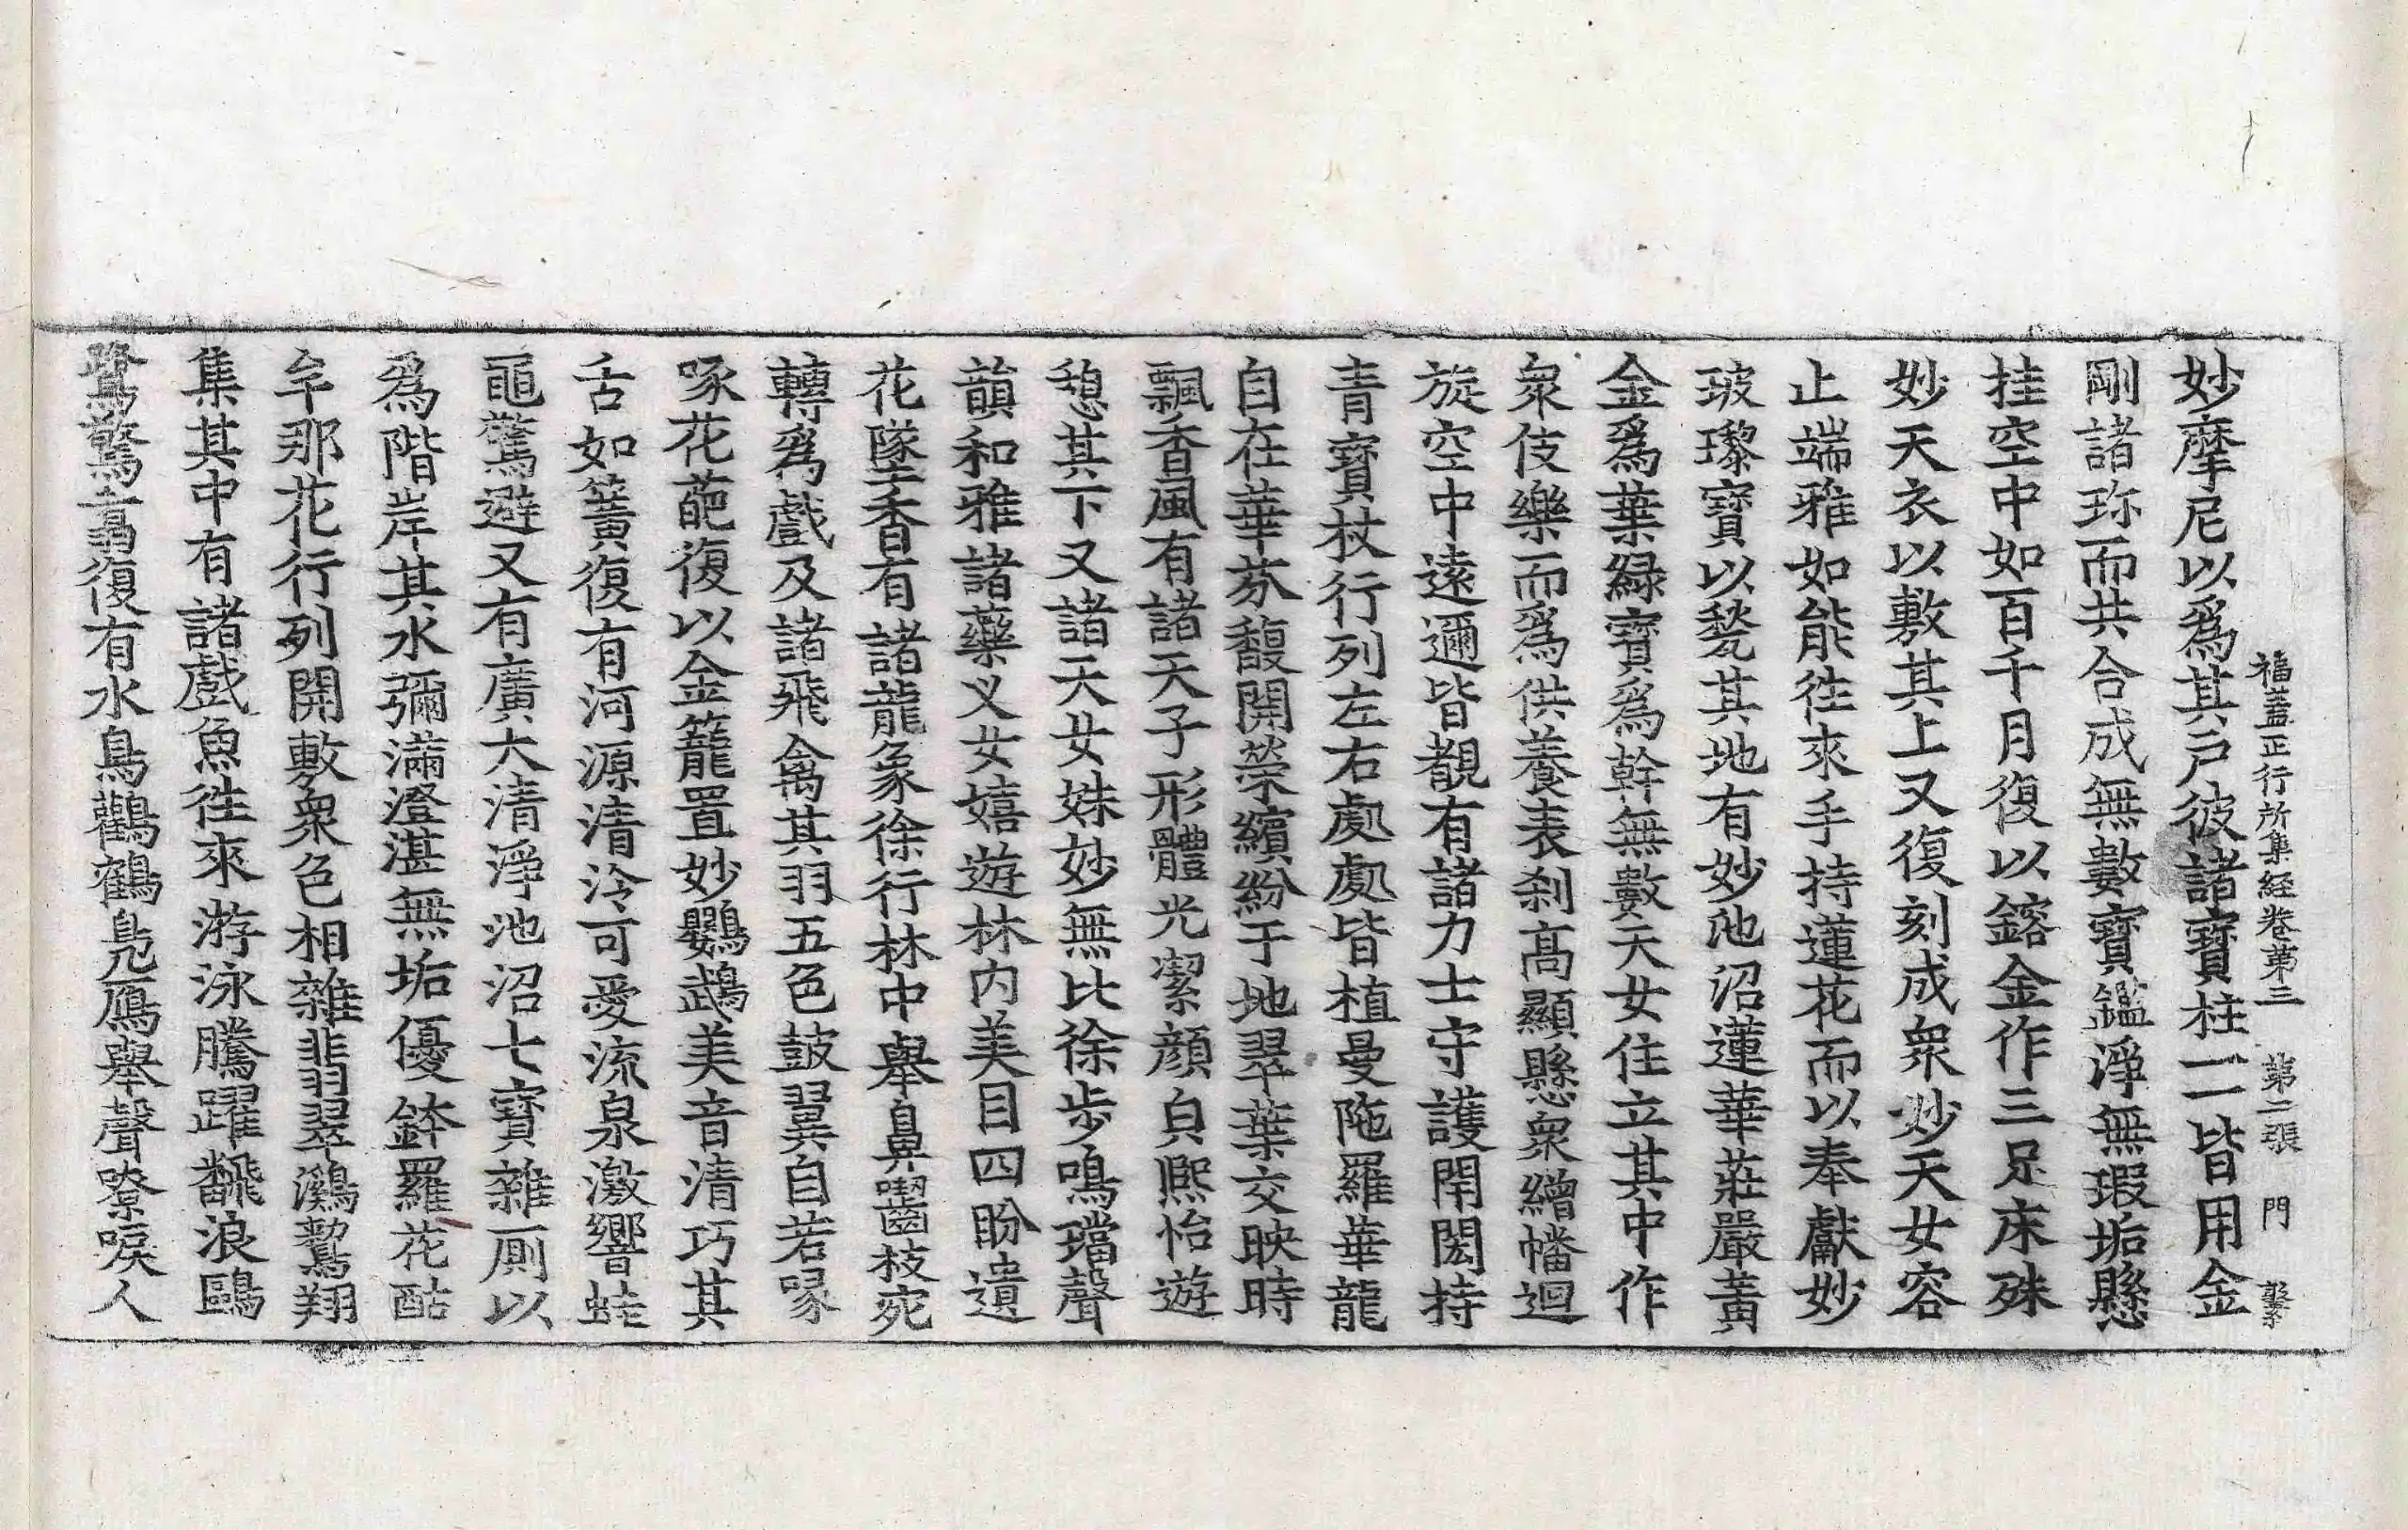 福蓋正行所集経卷第三 第二張 門
妙摩尼以爲其戸彼諸寶柱一一皆用金
剛諸珎而共合成無數寶鑑淨無瑕垢懸
挂空中如百千月復以鎔金作三足床殊
妙天衣以敷其上又復刻成衆妙天女容
止端雅如能徃來手持蓮花而以奉獻妙
玻瓈寶以甃其地有妙池沼蓮華莊嚴黃
金爲葉緑寶爲幹無數天女住立其中作
衆伎樂而爲供養表刹高顯懸衆繒幡迴
旋空中遠邇皆覩有諸力士守護開閎持
青寶杖行列左右處處皆植曼陁羅華龍
自在華芬馥開榮繽紛于地翠葉交映時
飄香風有諸天子形體光潔顔皃熈怡遊
憩其下又諸天女姝妙無比徐步鳴璫聲
韻和雅諸藥义女嬉遊林内美目四盼遺
花墜香有諸龍象徐行林中舉鼻齧枝宛
轉爲戲及諸飛禽其羽五色鼓翼自若喙
啄花葩復以金籠置妙鸚鵡美音清巧其
舌如簧復有河源清泠可愛流泉激響蛙
黽驚避又有廣大清淨池沼七寶雜厠以
爲階岸其水彌滿澄湛無垢優鉢羅花酤
牟那花行列開敷衆色相雜翡翠鸂鷘翔
集其中有諸戲魚徃來游泳騰躍飜浪鷗
鷺驚翥復有水鳥鸛鶴鳧鴈舉聲嘹唳人